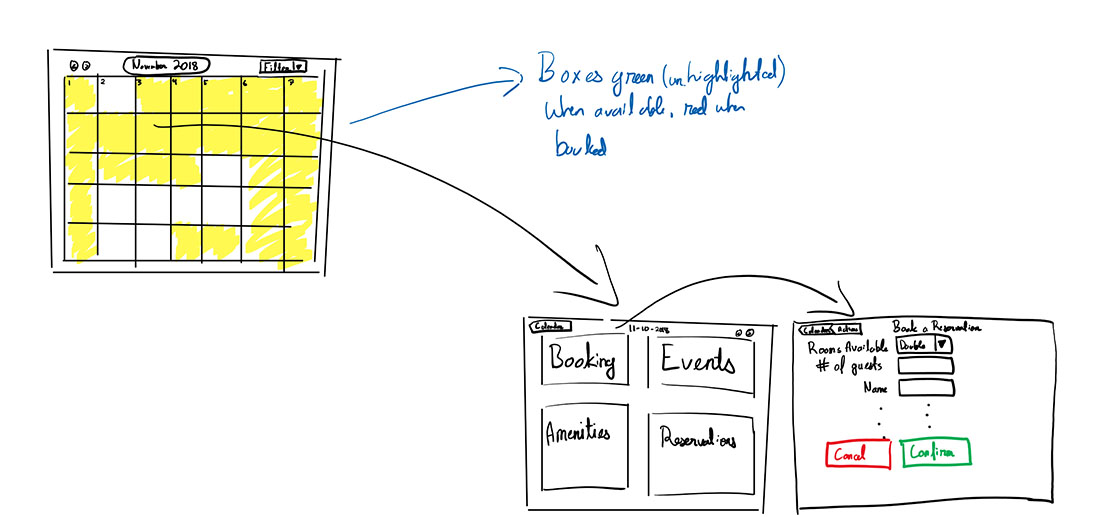 November 2018
Filter
1 2 3 4 5 6 7
Boxes green (unhighlighted)
when available, red when
booked
Calendar
11-10-2018
Booking
Events
Amenities
Reservations
Calendar Actions
Book a Reservation
Rooms Available
Double
# of guests
Name
Cancel
Confirm